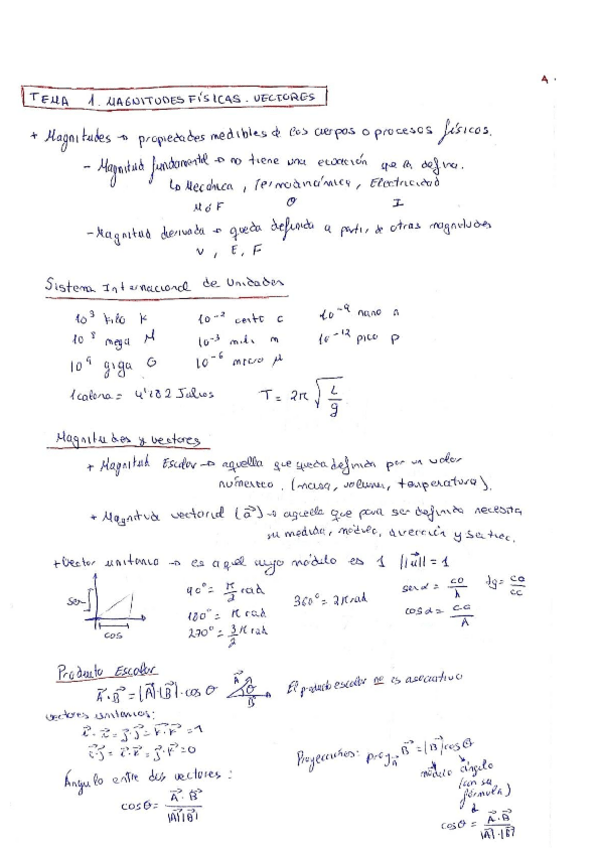 1.
TEMA 1. MAGNITUDES FÍSICAS. VECTORES
+ Magnitudes → propiedades medibles de los cuerpos o procesos físicos.
- Magnitud fundamental → no tiene una ecuación que la defina.
↳ Mecánica, Termodinámica, Electricidad
M ó F θ I
- Magnitud derivada → queda definida a partir de otras magnitudes
V, E, F
Sistema Internacional de Unidades
10³ kilo K 10⁻² cento c 10⁻⁹ nano n
mega M 10⁻³ mili m 10⁻¹² pico p
giga G 10⁻⁶ micro μ
1 caloría = 4'182 Julios T = 2π √(L/g)
Magnitudes y vectores
+ Magnitud Escalar → aquella que queda definida por un valor
numérico. (masa, volumen, temperatura).
+ Magnitud vectorial (a⃗) → aquella que para ser definida necesita
su medida, módulo, dirección y sentido.
+ Vector unitario → es aquel cuyo módulo es 1 ||u⃗|| = 1
sen cos 90° = π/2 rad 360° = 2π rad sen α = co/h tg = co/cc
180° = π rad cos α = cc/h
270° = 3/2 π rad
Producto Escalar
A⃗ · B⃗ = |A⃗|·|B⃗| · cos θ A⃗ θ B⃗ El producto escalar no es asociativo
vectores unitarios:
i⃗ · i⃗ = j⃗ · j⃗ = k⃗ · k⃗ = 1
i⃗ · j⃗ = i⃗ · k⃗ = j⃗ · k⃗ = 0
Proyecciones: proy_A⃗ B⃗ = |B⃗| cos θ
módulo ángulo
(con su
fórmula)
Ángulo entre dos vectores:
cos θ = A⃗ · B⃗ / |A⃗||B⃗|
cos θ = A⃗ · B⃗ / |A⃗|·|B⃗|